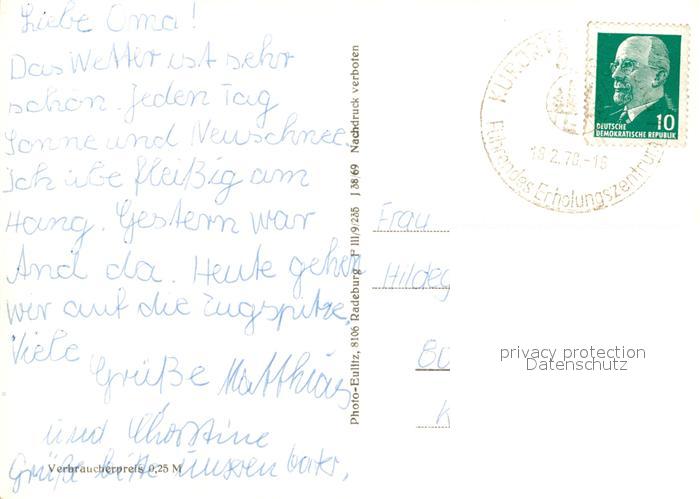 Liebe Oma!
Das Wetter ist sehr
schön. Jeden Tag
Sonne und Neuschnee.
Ich übe fleißig am
Hang. Gestern war
Andi da. Heute gehen
wir auf die Zugspitze.
Viele
Grüße Matthias
und Christine
Grüße bitte unseren Vater.
Verbraucherpreis 0,25 M
Photo-Eulitz, 8106 Radeburg F III/9/235 J 38 69 Nachdruck verboten
10
DEUTSCHE
DEMOKRATISCHE REPUBLIK
KURORT
18.2.70-16
Führendes Erholungszentrum
Frau
Hildeg
80
K
privacy protection
Datenschutz